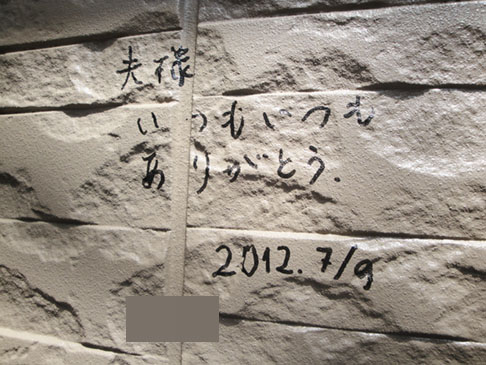 夫様
いつもいつも
ありがとう.
2012.7/9